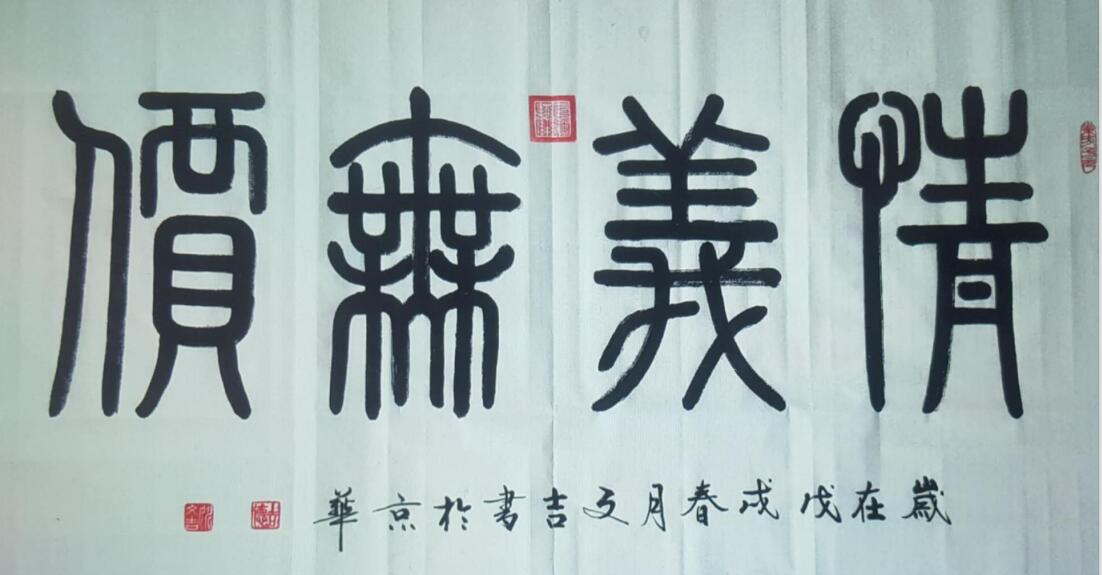 情義無價
歲在戊戌春月文吉書於京華